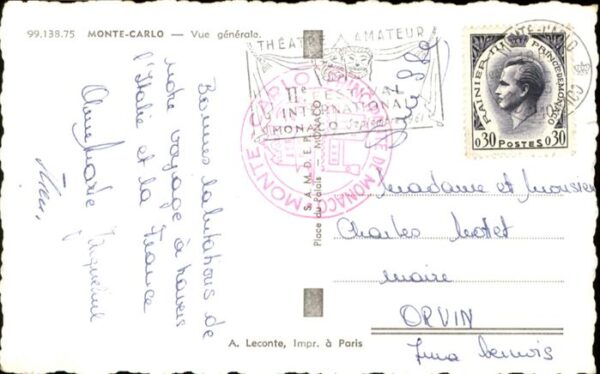 99.138.75 MONTE-CARLO — Vue générale.
THÉATRE AMATEUR
IIe FESTIVAL
INTERNATIONAL
MONACO
RAINIER III PRINCE DE MONACO
0,30 POSTES 0,30
MONTE-CARLO
PRINCIPAUTÉ DE MONACO
S.A.M.D.E.P. — MONACO
Place du Palais
Bonnes salutations de
notre voyage à travers
l'Italie et la France
Anne Marie
Madame et Monsieur
Charles Mottet
maire
ORVIN
Jura bernois
A. Leconte, Impr. à Paris